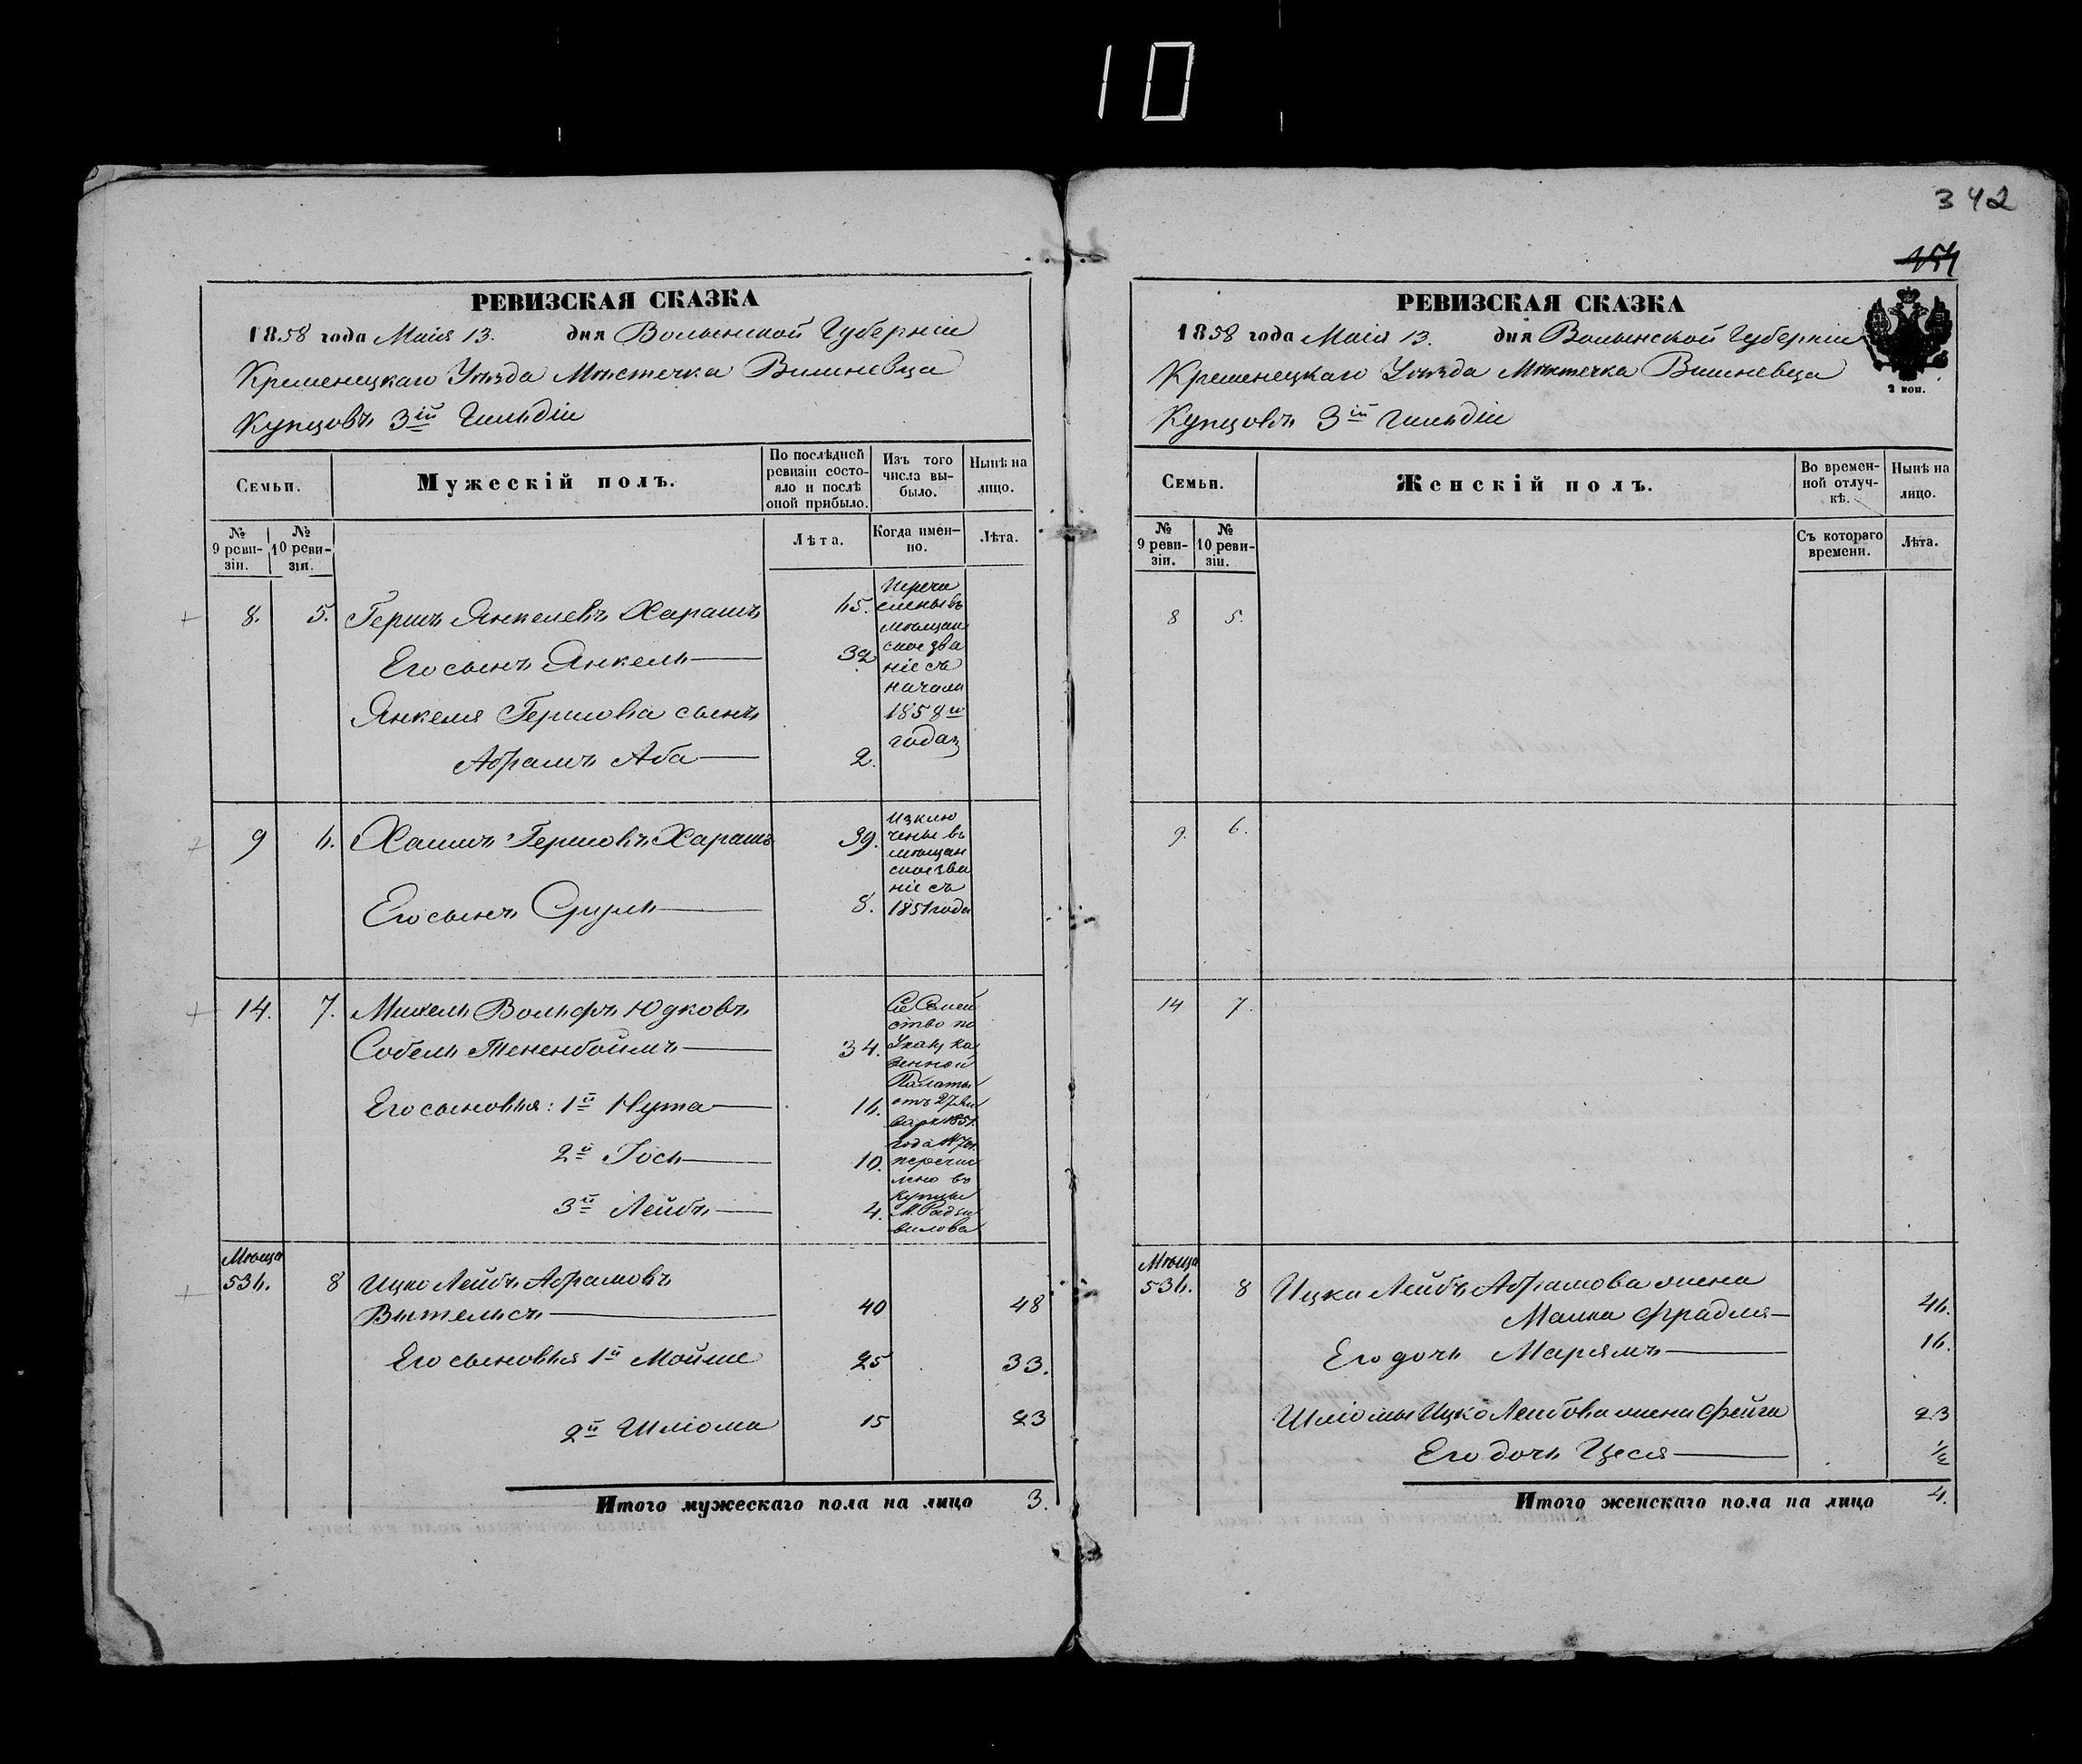 10
РЕВИЗСКАЯ СКАЗКА
1858 года Маія 13. дня Волынской Губерніи
Кременецкаго Уѣзда Мѣстечка Вишневца
Купцовъ 3ій Гильдіи
Семьи.
Мужескій полъ.
По послѣдней ревизіи состояло и послѣ оной прибыло.
Изъ того числа выбыло.
Нынѣ на лицо.
№ 9 ревизіи.
№ 10 ревизіи.
Лѣта.
Когда именно.
Лѣта.
8. 5. Гершъ Янкелевъ Харашъ 65.
Его сынъ Янкель 32
Янкеля Гершова сынъ
Абрамъ Аба 2.
Перечи
слены въ
мѣщан
ское зва
ніе съ
начала
1858го
года
9 6. Хаимъ Гершовъ Харашъ 39.
Его сынъ Сруль 8.
Изклю
чены въ
мѣщан
ское зва
ніе съ
1851 года
14. 7. Михель Вольфъ Юдковъ
Собель Тененбоймъ 34.
Его сыновья: 1й Нута 16.
2й Іось 10.
3й Лейбъ 4.
Сіе Семей
ство по
Указу Ка
зенной
Палаты
отъ 27 Ян
варя 1851
года
перечис
лено въ
купцы
М. Радзи
вилова
Мѣща
536. 8 Ицко Лейбъ Абрамовъ
Вительсъ 40 48
Его сыновья 1й Мойше 25 33.
2й Шліома 15 23
Итого мужескаго пола на лицо 3.
342
154
РЕВИЗСКАЯ СКАЗКА
1858 года Маія 13. дня Волынской Губерніи
Кременецкаго Уѣзда Мѣстечка Вишневца
Купцовъ 3ій Гильдіи
2 коп.
Семьи.
Женскій полъ.
Во временной отлучкѣ.
Нынѣ на лицо.
№ 9 ревизіи.
№ 10 ревизіи.
Съ котораго времени.
Лѣта.
8 5.
9. 6.
14 7.
Мѣща
536. 8 Ицки Лейбъ Абрамова жена
Малка Фрадля 46.
Его дочь Марьямъ 16.
Шліомы Ицко Лейбова жена Фейга 23
Его дочь Цеся 1/2
Итого женскаго пола на лицо 4.